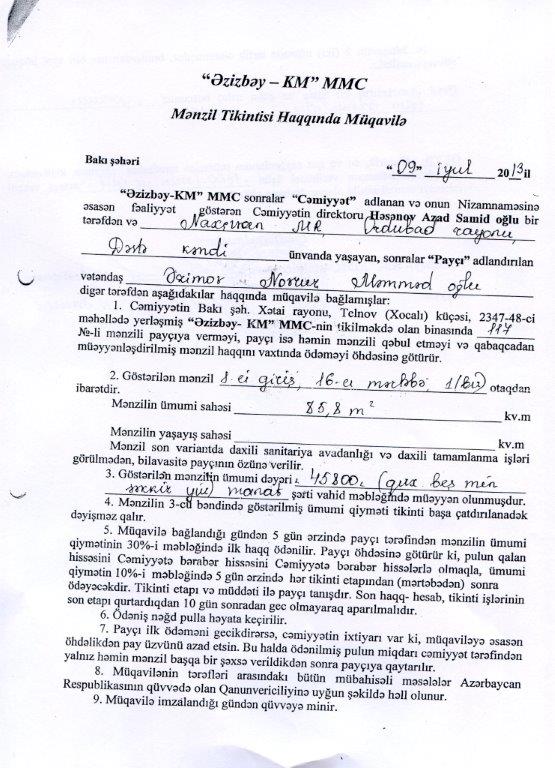 “Əzizbəy – KM” MMC
Mənzil Tikintisi Haqqında Müqavilə
Bakı şəhəri “ 09 ” iyul 2013il
“Əzizbəy-KM” MMC sonralar “Cəmiyyət” adlanan və onun Nizamnaməsinə
əsasən fəaliyyət göstərən Cəmiyyətin direktoru Həsənov Azad Samid oğlu bir
tərəfdən və Naxçıvan MR, Ordubad rayonu,
Dəstə kəndi ünvanda yaşayan, sonralar “Payçı” adlandırılan
vətəndaş Əzimov Novruz Məmməd oğlu
digər tərəfdən aşağıdakılar haqqında müqavilə bağlamışlar:
1. Cəmiyyətin Bakı şəh. Xətai rayonu, Telnov (Xocalı) küçəsi, 2347-48-ci
məhəllədə yerləşmiş “Əzizbəy- KM” MMC-nin tikilməkdə olan binasında 117
№-li mənzili payçıya verməyi, payçı isə həmin mənzili qəbul etməyi və qabaqcadan
müəyyənləşdirilmiş mənzil haqqını vaxtında ödəməyi öhdəsinə götürür.
2. Göstərilən mənzil 1-ci giriş, 16-cı mərtəbə, 1/(bir) otaqdan
ibarətdir.
Mənzilin ümumi sahəsi 85,8 m² kv.m
Mənzilin yaşayış sahəsi kv.m
Mənzil son variantda daxili sanitariya avadanlığı və daxili tamamlanma işləri
görülmədən, bilavasitə payçının özünə verilir.
3. Göstərilən mənzilin ümumi dəyəri 45800 (qırx beş min
səkkiz yüz) manat şərti vahid məbləğində müəyyən olunmuşdur.
4. Mənzilin 3-cü bəndində göstərilmiş ümumi qiyməti tikinti başa çatdırılanadək
dəyişməz qalır.
5. Müqavilə bağlandığı gündən 5 gün ərzində payçı tərəfindən mənzilin ümumi
qiymətinin 30%-i məbləğində ilk haqq ödənilir. Payçı öhdəsinə götürür ki, pulun qalan
hissəsini Cəmiyyətə bərabər hissəsini Cəmiyyətə bərabər hissələrlə olmaqla, ümumi
qiymətin 10%-i məbləğində 5 gün ərzində hər tikinti etapından (mərtəbədən) sonra
ödəyəcəkdir. Tikinti etapı və müddəti ilə payçı tanışdır. Son haqq- hesab, tikinti işlərinin
son etapı qurtardıqdan 10 gün sonradan gec olmayaraq aparılmalıdır.
6. Ödəniş nəğd pulla həyata keçirilir.
7. Payçı ilk ödəməni gecikdirərsə, cəmiyyətin ixtiyarı var ki, müqaviləyə əsasən
öhdəlikdən pay üzvünü azad etsin. Bu halda ödənilmiş pulun miqdarı cəmiyyət tərəfindən
yalnız həmin mənzil başqa bir şəxsə verildikdən sonra payçıya qaytarılır.
8. Müqavilənin tərəfləri arasındakı bütün mübahisəli məsələlər Azərbaycan
Respublikasının qüvvədə olan Qanunvericiliyinə uyğun şəkildə həll olunur.
9. Müqavilə imzalandığı gündən qüvvəyə minir.